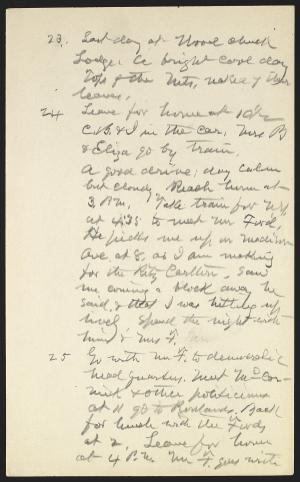 23. Last day at Wood chuck
Lodge. A bright cool day
Tops of the Mts, naked of their
leaves.
24 Leave for home at 10 1/2
C.B. & I in the car, Mrs B
& Eliza go by train.
A good drive; day calm
but cloudy. Reach home at
3 P.M. Take train for N.Y.
at 4.35 to meet Mr Ford,
He picks me up on Madison
Ave at 8, as I am making
for the Ritz Carlton, saw
me coming a block away he
said, & that I was hitting up
lively. Spend the night with
him & Mrs F.
25 Go with Mr F. to democratic
head quarters. Meet McCor-
mick & other politicians
at 11 go to Rowlands. Back
for lunch with the Fords
at 2, Leave for home
at 4 P.M. Mr F. goes with